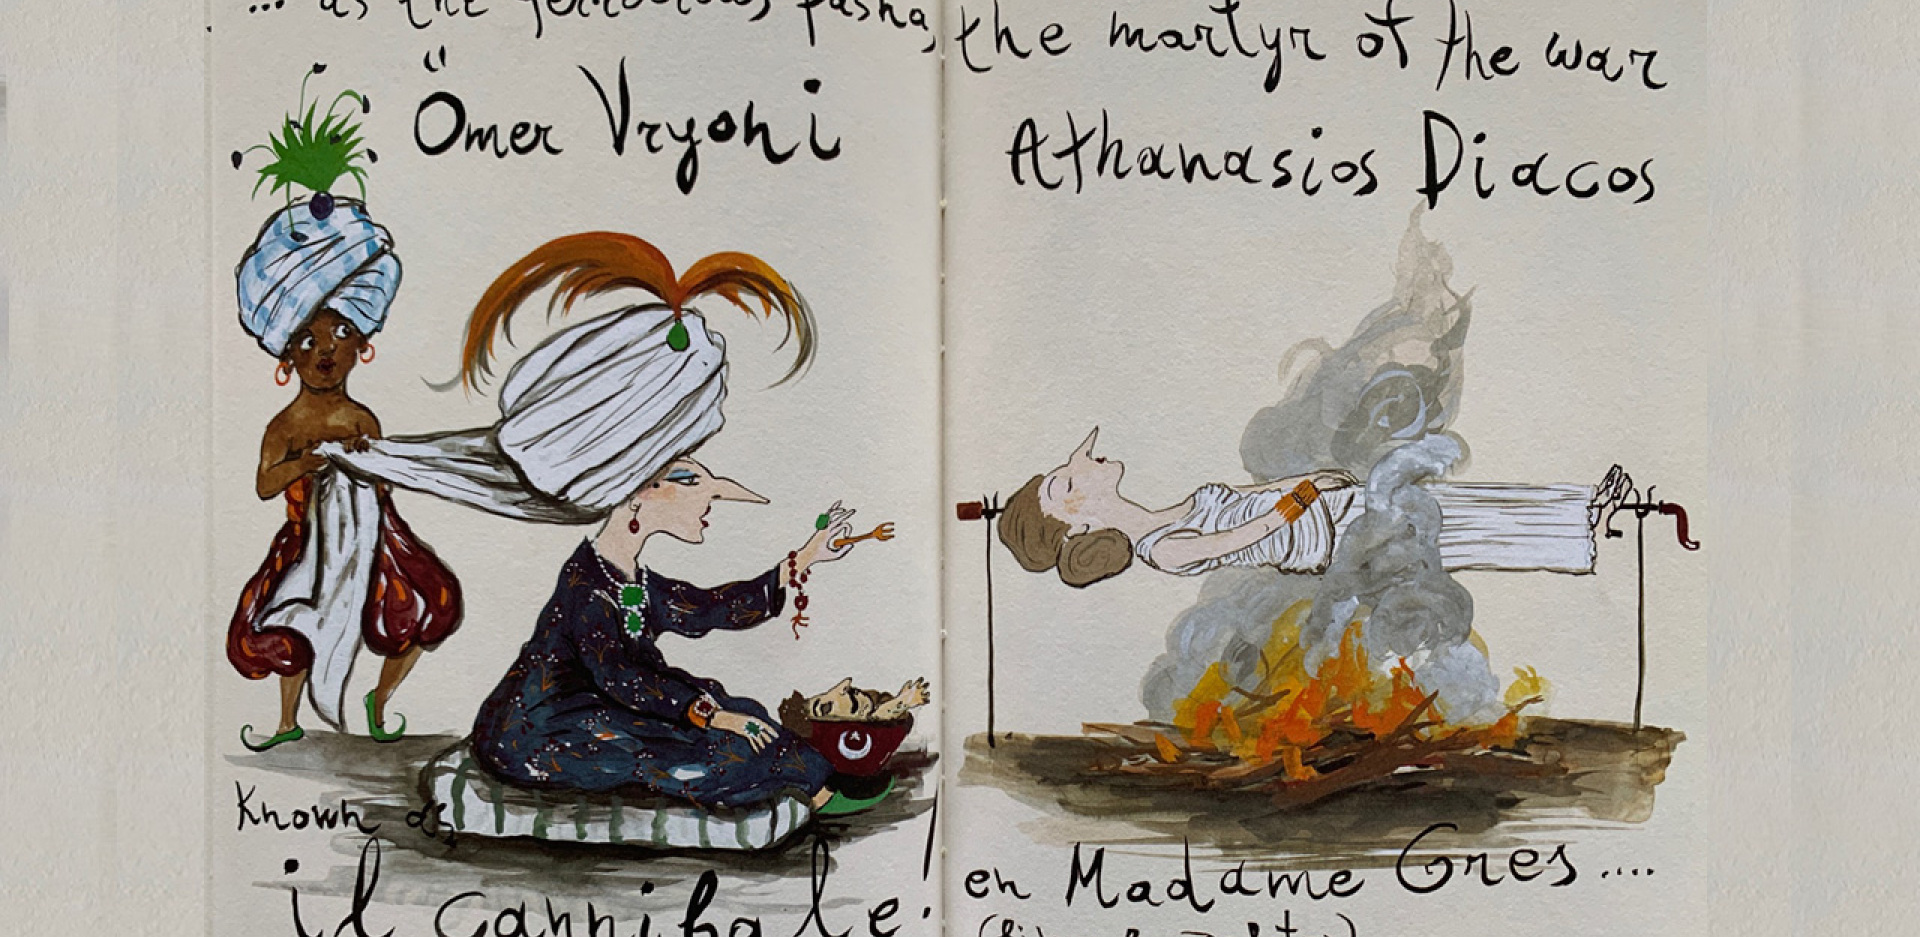 ... as the ferrocious pasha,
Ömer Vryoni
Known as
il cannibale!
the martyr of the war
Athanasios Diacos
en Madame Gres....